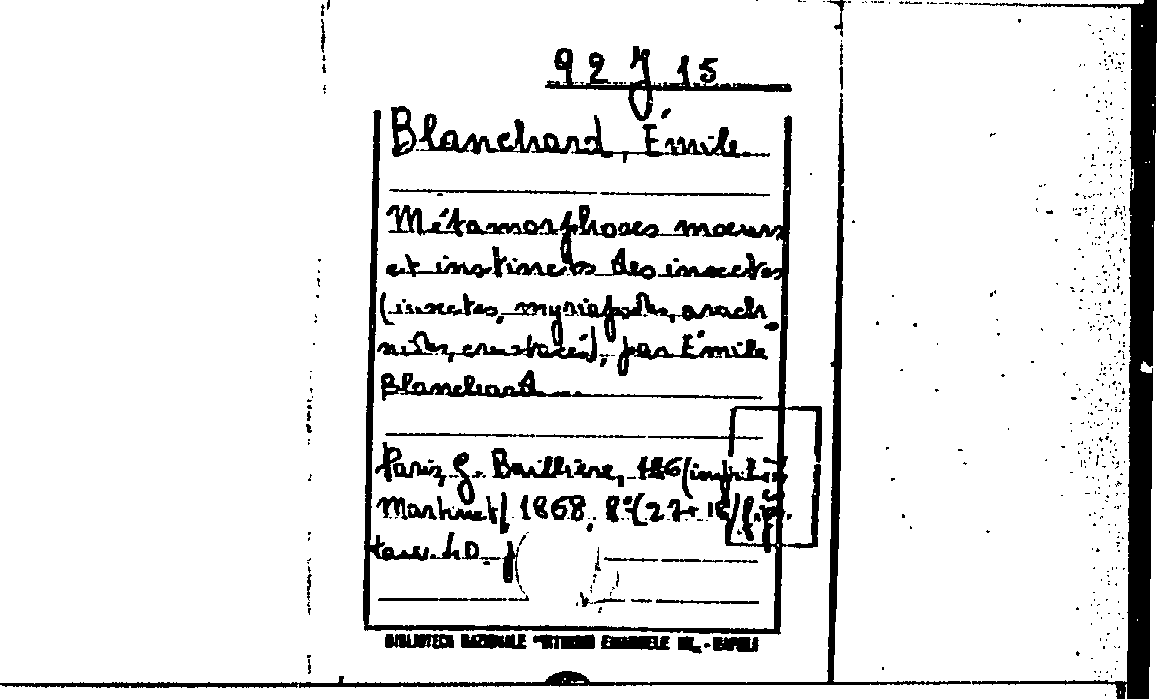 92 J 15
Blanchard, Émile
Métamorphoses mœurs
et instincts des insectes
(insectes, myriapodes, arach
nides, crustacés), par Émile
Blanchard
Paris, G. Baillière, (impr.
Martinet) 1868, 8°
tavv. 40.
BIBLIOTECA NAZIONALE "VITTORIO EMANUELE III" - NAPOLI